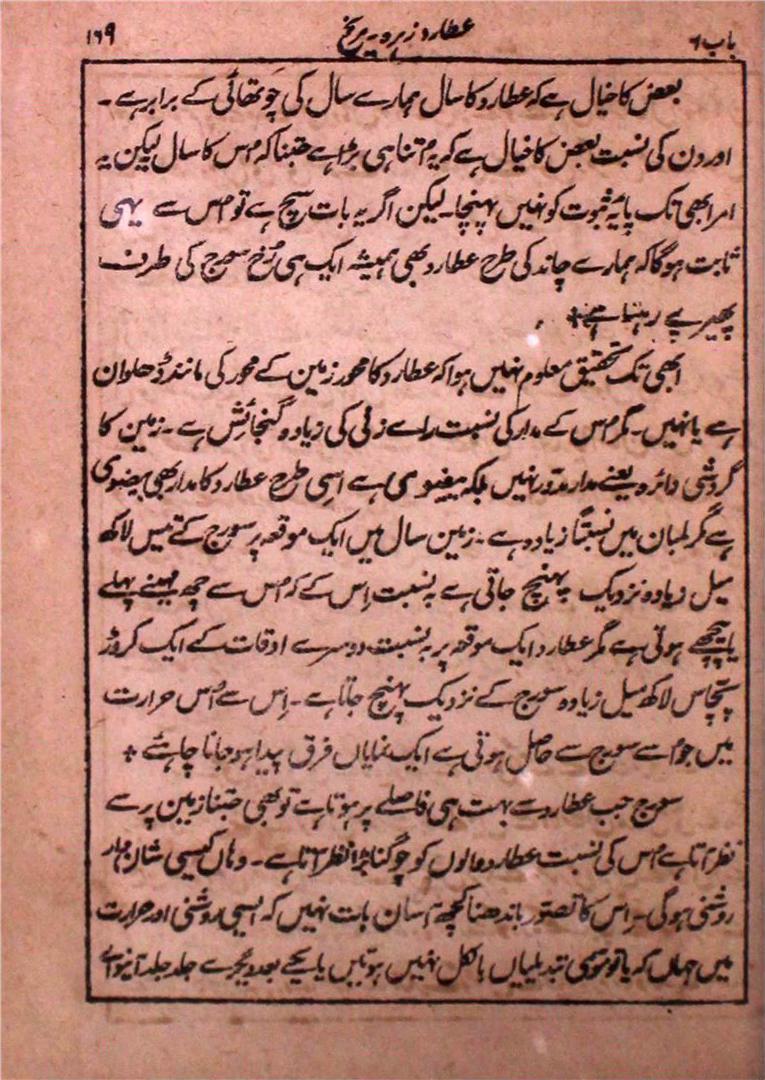 باب ۶ عطارد زہرہ۔ مریخ ۱۶۹
بعض کا خیال ہے کہ عطارد کا سال ہمارے سال کی چَوتھائی کے برابر ہے۔
اور دن کی نسبت بعض کا خیال ہے کہ یہ اُتنا ہی بڑا ہے جتنا کہ اُس کا سال لیکن یہ
امر ابھی تک پایۂ ثبوت کو نہیں پہنچا۔ لیکن اگر یہ بات سچ ہے تو اُس سے یہی
ثابت ہوگا کہ ہمارے چاند کی طرح عطارد بھی ہمیشہ ایک ہی رُخ سورج کی طرف
پھیرے رہتا ہے +
ابھی تک تحقیق معلوم نہیں ہوا کہ عطارد کا محور زمین کے محور کی مانند ڈھلوان
ہے یا نہیں۔ مگر اُس کے مدار کی نسبت راے زنی کی زیادہ گنجائش ہے۔ زمین کا
گردشی دائرہ یعنے مدار مدوّر نہیں بلکہ بیضوی ہے اسی طرح عطارد کا مدار بھی بیضوی
ہے مگر لمبان میں نسبتاً زیادہ ہے۔ زمین سال میں ایک موقعہ پر سورج کے تیس لاکھ
میل زیادہ نزدیک پہنچ جاتی ہے بہ نسبت اِس کے کہ اُس سے چھ مہینے پہلے
یا پیچھے ہوتی ہے مگر عطارد ایک موقعہ پر بہ نسبت دوسرے اوقات کے ایک کروڑ
پچاس لاکھ میل زیادہ سورج کے نزدیک پہنچ جاتا ہے۔ اِس سے اُس حرارت
میں جو اُسے سورج سے حاصل ہوتی ہے ایک نمایاں فرق پیدا ہوجانا چاہئے +
سورج جب عطارد سے بہت ہی فاصلے پر ہوتا ہے تو بھی جتنا زمین پر سے
نظر آتا ہے اُس کی نسبت عطارد والوں کو چوگنا بڑا نظر آتا ہے۔ وہاں کیسی شان دار
روشنی ہوگی۔ اِس کا تصّور باندھنا کچھ آسان بات نہیں کہ ایسی روشنی اور حرارت
میں جہاں کہ یا تو موسمی تبدیلیاں بالکل نہیں ہوتیں یا یکے بعد دیگرے جلد جلد آنیوالی